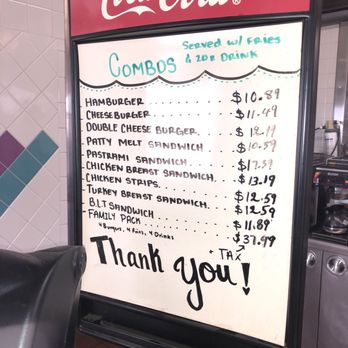 Coca-Cola®
Served w/ Fries
COMBOS & 20z DRINK
HAMBURGER $10.89
CHEESE BURGER $11.49
DOUBLE CHEESE BURGER. $12.19
PATTY MELT SANDWICH $10.59
PASTRAMI SANDWICH
CHICKEN BREAST SANDWICH.
CHICKEN STRIPS. $13.19
TURKEY BREAST SANDWICH. $12.59
B.L.T SANDWICH $12.59
FAMILY PACK $11.89
4 Burgers, 4 Fries, 4 Drinks $37.99
+ TAX
Thank you!